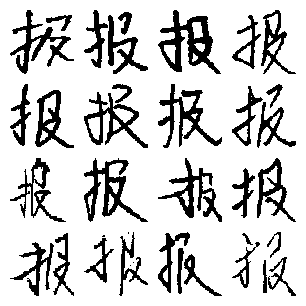 报报报报
报报报报
报报报报
报报报报